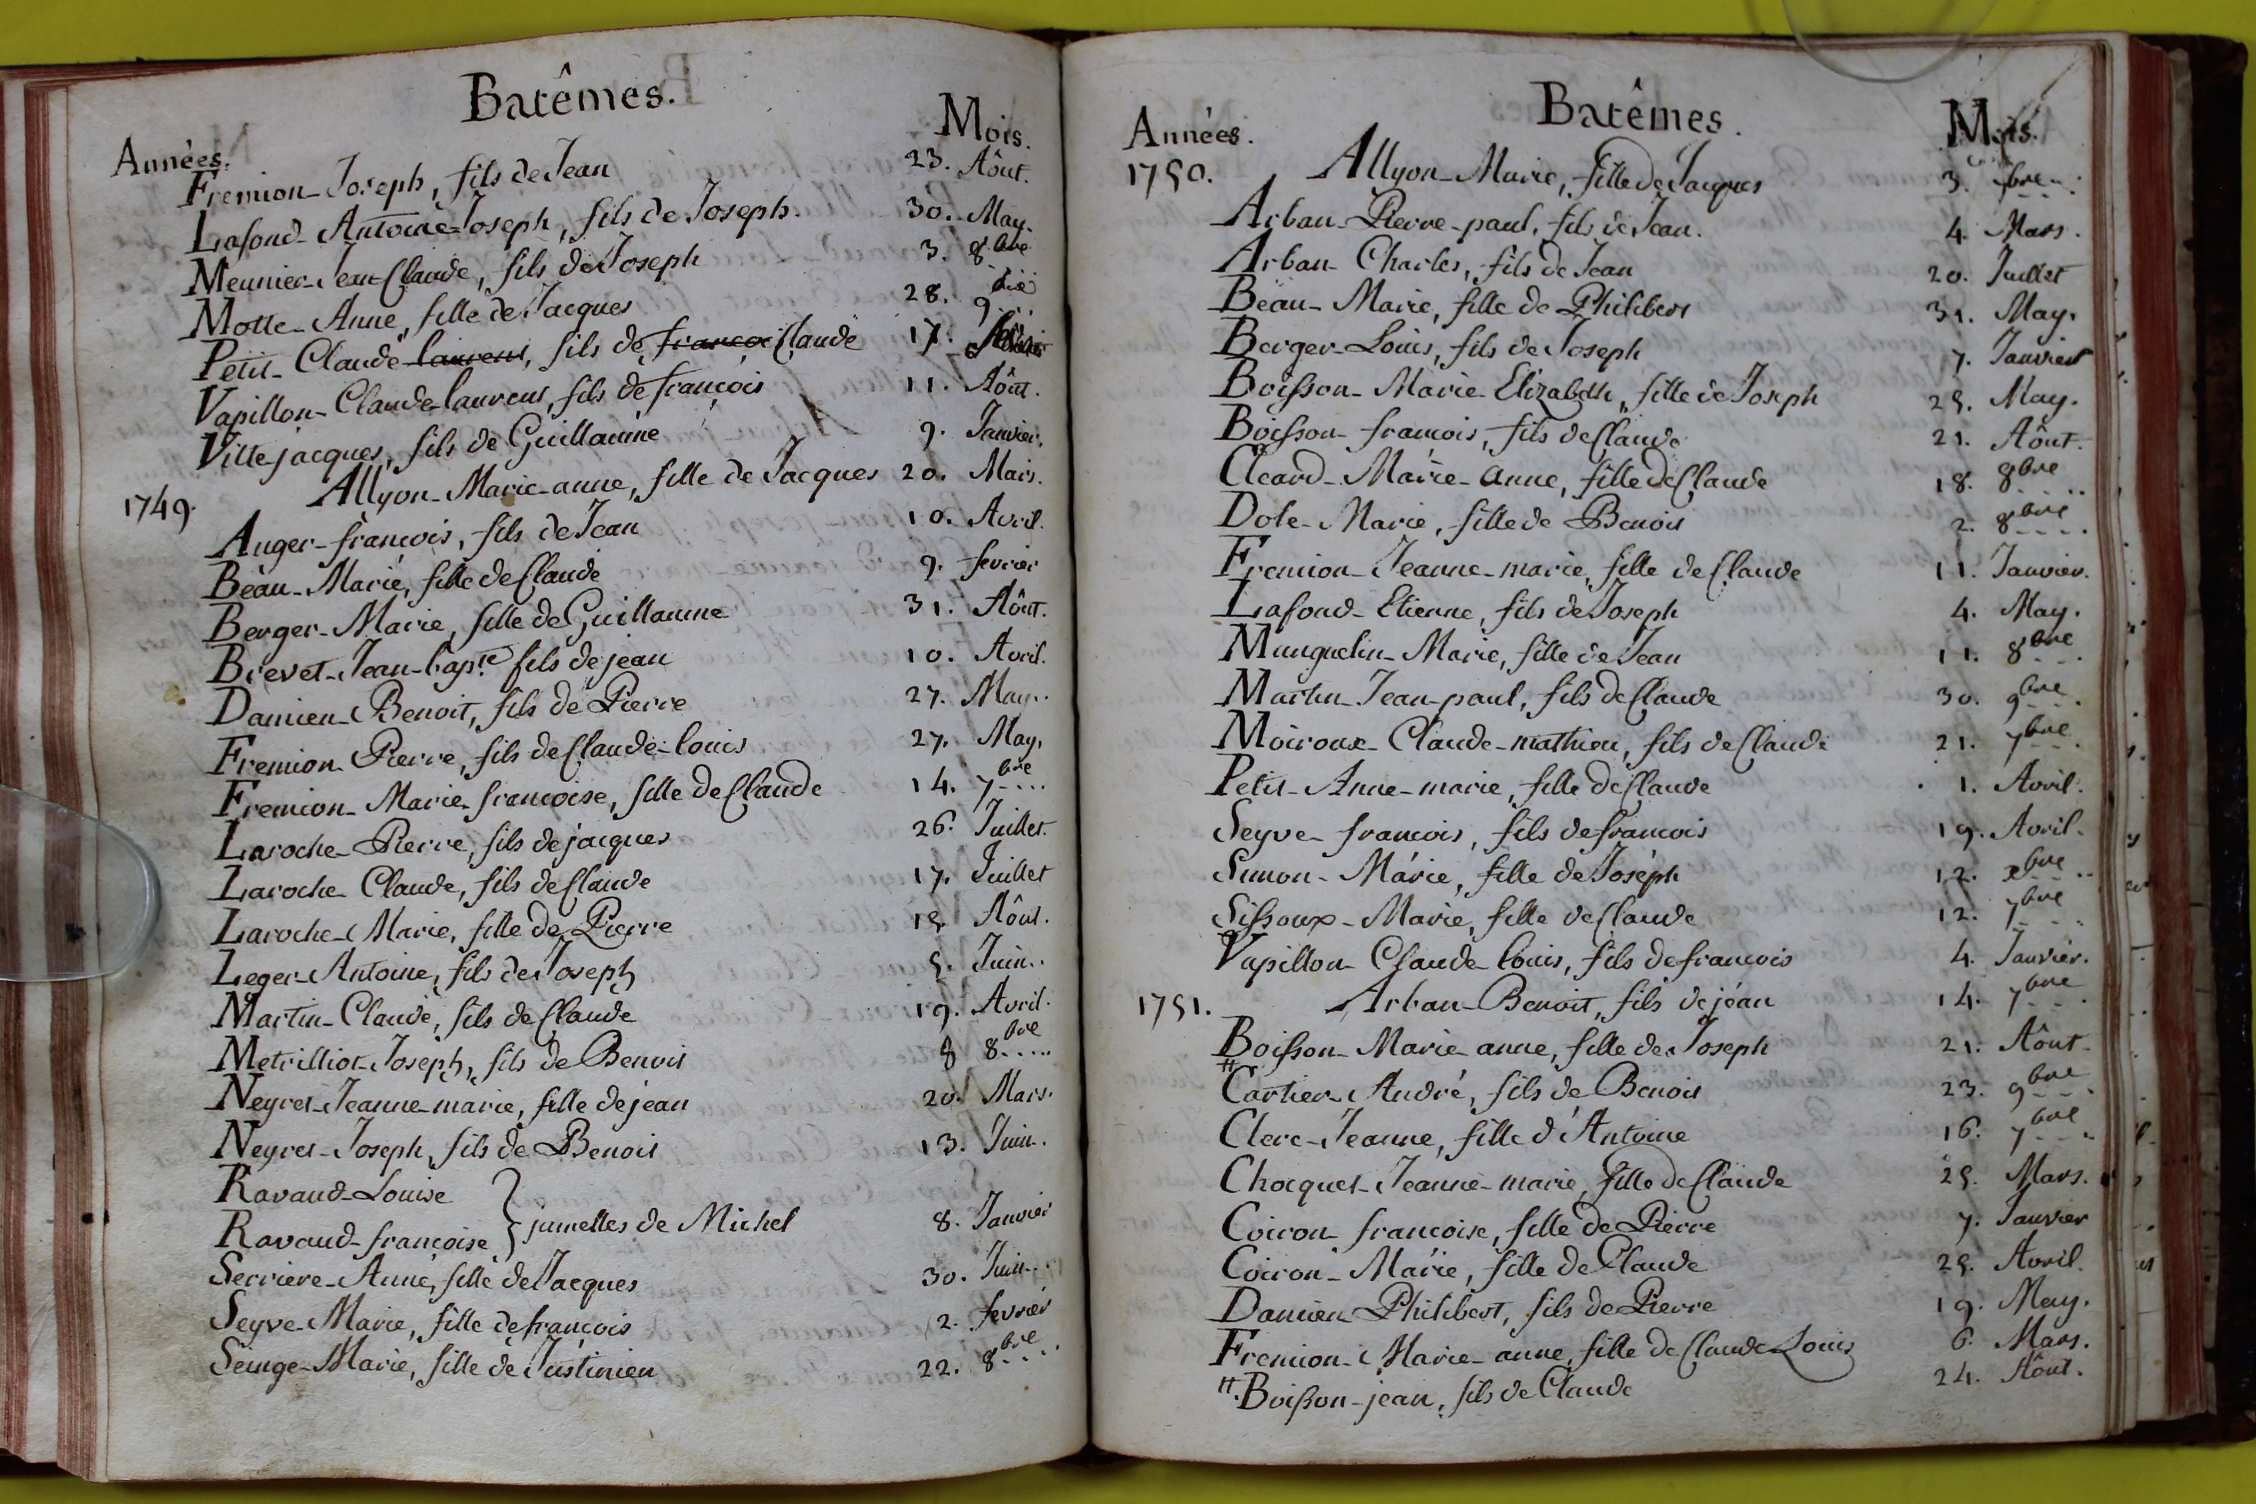 Batêmes.
Années. Mois.
Fremion-Joseph, fils de Jean 23. Aôut.
Lafond-Antoine-Joseph, fils de Joseph. 30. May.
Meunier-Jean Claude, fils de Joseph 3. 8bre
Motte-Anne, fille de Jacques 28. 9bre
Petit-Claude laurent, fils de francois Claude 17.
Vapillon-Claude-laurent, fils de françois 11. Aôut.
Ville jacques, fils de Guillaume 9. Janvier.
1749. Allyon-Marie-anne, fille de Jacques 20. Mars.
Auger-francois, fils de Jean 10. Avril.
Beau-Marie, fille de Claude 9. fevrier
Berger-Marie, fille de Guillaume 31. Aôut.
Brevet-Jean-bapte fils de jean 10. Avril.
Damien-Benoit, fils de Pierre 27. May..
Fremion-Pierre, fils de Claude-louis 27. May.
Fremion-Marie-francoise, fille de Claude 14. 7bre
Laroche-Pierre, fils de jacques 26. Juillet.
Laroche-Claude, fils de Claude 17. Juillet
Laroche-Marie, fille de Pierre 15. Aôut.
Leger-Antoine, fils de Joseph 5. Juin..
Martin-Claude, fils de Claude 19. Avril.
Metrilliot-Joseph, fils de Benoit 8 8bre
Neyret-Jeanne-marie, fille de jean 20. Mars.
Neyret-Joseph, fils de Benoit 13. Juin.
Ravaud-Louise
Ravaud-françoise } jumelles de Michel 8. Janvier
Serriere-Anne, fille de Jacques 30. Juin..
Seyve-Marie, fille de francois 2. fevrier
Seinge-Marie, fille de Justinien 22. 8bre
Batêmes.
Années. Mois.
1750. Allyon-Marie, fille de Jacques 3. 7bre
Arban-Pierre-paul, fils de Jean. 4. Mars.
Arban-Charles, fils de Jean 20. Juillet
Beau-Marie, fille de Philibert 31. May.
Berger-Louis, fils de Joseph 7. Janvier
Boisson-Marie-Elizabeth, fille de Joseph 25. May.
Boisson-francois, fils de Claude 21. Aôut.
Cleard-Marie-anne, fille de Claude 18. 8bre
Dole-Marie, fille de Benoit 2. 8bre
Fremion-Jeanne-marie, fille de Claude 11. Janvier.
Lafond-Etienne, fils de Joseph 4. May.
Munguelin-Marie, fille de Jean 11. 8bre
Martin-Jean-paul, fils de Claude 30. 9bre
Moiroux-Claude-mathieu, fils de Claude 21. 7bre
Petit-Anne-marie, fille de Claude 1. Avril.
Seyve-francois, fils de francois 19. Avril.
Simon-Marie, fille de Joseph 12. xbre
Sissoux-Marie, fille de Claude 12. 7bre
Vapillon-Claude-louis, fils de francois 4. Janvier.
1751. Arban-Benoit, fils de jean 14. 7bre
Boisson-Marie-anne, fille de Joseph 21. Aôut
# Cartier-André, fils de Benoit 23. 9bre
Clerc-Jeanne, fille d'Antoine 16. 7bre
Chocquet-Jeanne-marie, fille de Claude 25. Mars.
Coiron francoise, fille de Pierre 7. Janvier
Coiron-Marie, fille de Claude 25. Avril.
Damien-Philibert, fils de Pierre 19. May.
Fremion-Marie-anne, fille de Claude-Louis 6. Mars.
#. Boisson-jean, fils de Claude 24. Aôut.